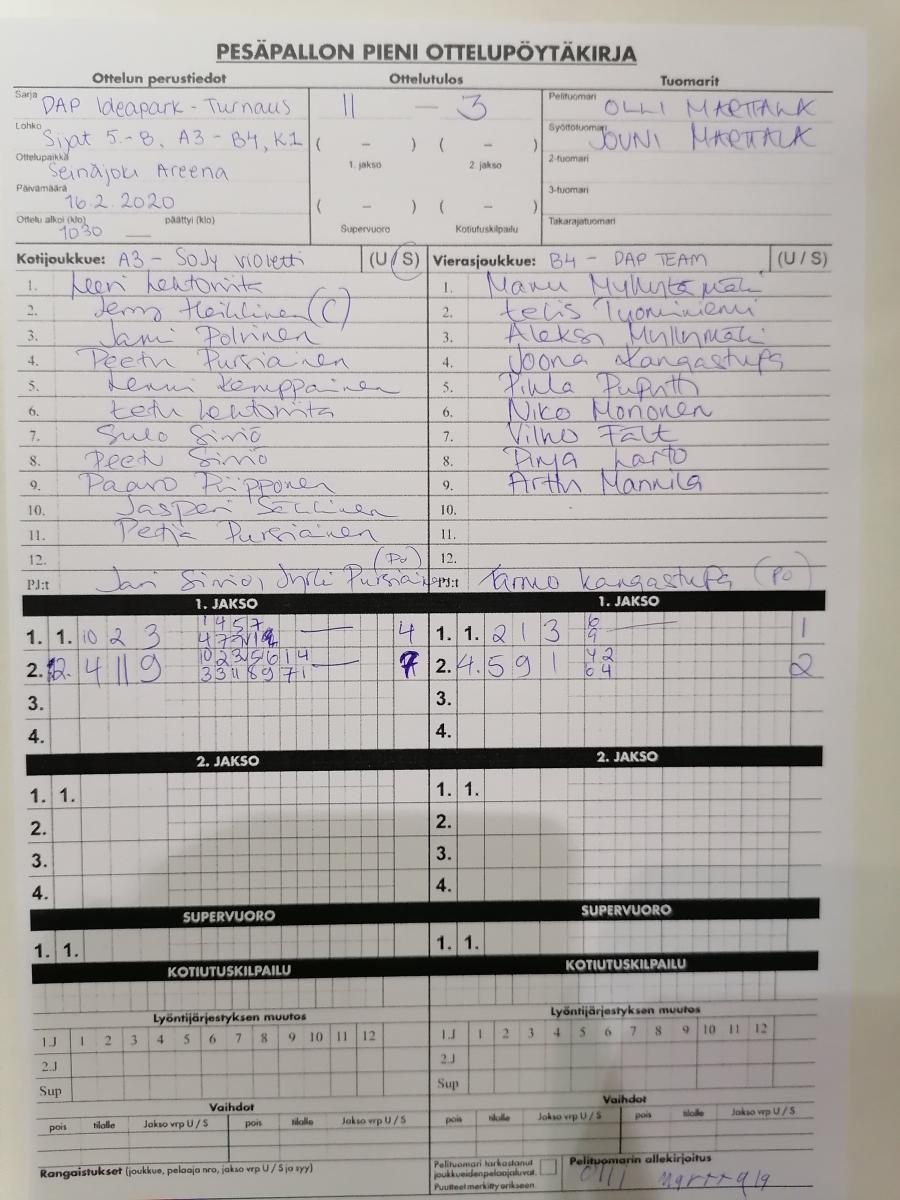 PESÄPALLON PIENI OTTELUPÖYTÄKIRJA
Ottelun perustiedot
Ottelutulos
Tuomarit
Sarja DAP Ideapark - Turnaus
11 — 3
Pelituomari OLLI MARTTALA
Lohko Sijat 5.-8, A3 - B4, K1
( – ) ( – )
1. jakso 2. jakso
Syöttötuomari JOUNI MARTTALA
Ottelupaikka Seinäjoki Areena
2-tuomari
Päivämäärä 16.2.2020
( – ) ( – )
Supervuoro Kotiutuskilpailu
3-tuomari
Ottelu alkoi (klo) 1030 päättyi (klo) —
Takarajatuomari
Kotijoukkue: A3 - SoJy violetti (U/S)
1. Leevi Lehtoviita
2. Jermo Heikkinen (C)
3. Jami Polvinen
4. Peetu Pursiainen
5. Lenni Kemppainen
6. Eetu Lehtoviita
7. Sulo Siviö
8. Peetu Siviö
9. Paavo Piipponen
10. Jasperi Sekkinen
11. Petja Pursiainen
12.
PJ:t Jari Siviö, Jyrki Pursiainen (PO)
Vierasjoukkue: B4 - DAP TEAM (U / S)
1. Manu Myllymäki
2. Eelis Tuominiemi
3. Aleksi Myllymäki
4. Joona Kangastupa
5. Pihla
6. Niko Mononen
7. Vilho Fält
8. Pinja Karto
9. Arttu Mannila
10.
11.
12.
PJ:t Tarmo Kangastupa (PO)
1. JAKSO
1. 1. 10 2 3 1 4 5 7 — 4
2. 12. 4 11 9 10 2 3 5 6 1 4 — 7
3 3 11 8 9 7 1
3.
4.
1. JAKSO
1. 1. 2 1 3 6 — 1
9
2. 4. 5 9 1 4 2 2
6 4
3.
4.
2. JAKSO
1. 1.
2.
3.
4.
2. JAKSO
1. 1.
2.
3.
4.
SUPERVUORO
1. 1.
SUPERVUORO
1. 1.
KOTIUTUSKILPAILU
KOTIUTUSKILPAILU
Lyöntijärjestyksen muutos
1.J 1 2 3 4 5 6 7 8 9 10 11 12
2.J
Sup
Lyöntijärjestyksen muutos
1.J 1 2 3 4 5 6 7 8 9 10 11 12
2.J
Sup
Vaihdot
pois tilalle Jakso vrp U / S pois tilalle Jakso vrp U / S
Vaihdot
pois tilalle Jakso vrp U / S pois tilalle Jakso vrp U / S
Rangaistukset (joukkue, pelaaja nro, jakso vrp U / S ja syy)
Pelituomari tarkastanut
joukkueidenpelaajaluvat.
Puutteet merkitty erikseen.
Pelituomarin allekirjoitus
Olli Marttala